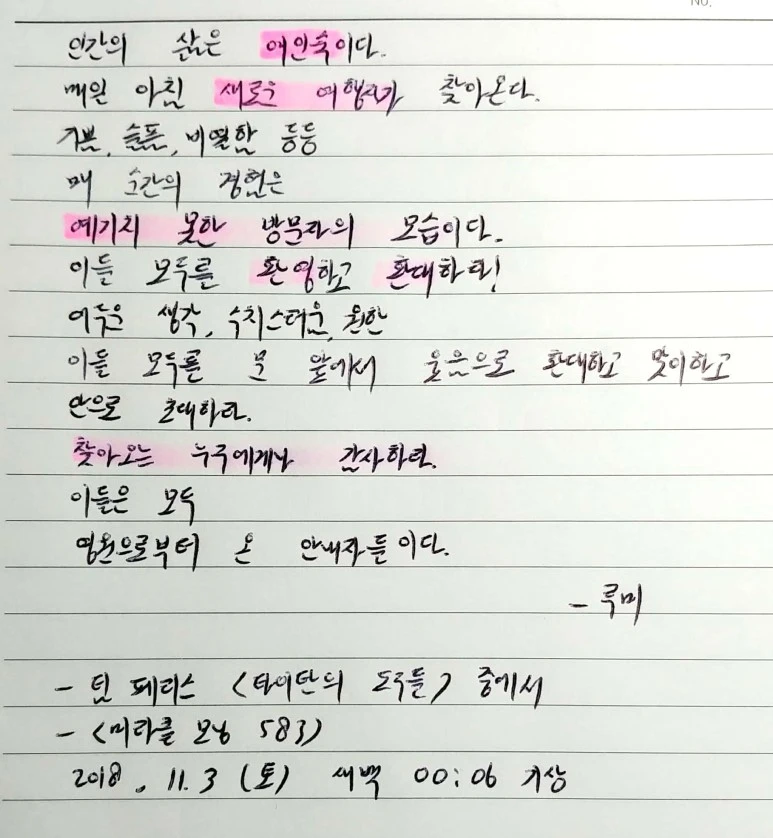 No.
인간의 삶은 여인숙이다.
매일 아침 새로운 여행자가 찾아온다.
기쁨, 슬픔, 비열함 등등
매 순간의 경험은
예기치 못한 방문자의 모습이다.
이들 모두를 환영하고 환대하라!
어두운 생각, 수치스러운, 원한
이들 모두를 문 앞에서 웃음으로 환대하고 맞이하고
안으로 초대하라.
찾아오는 누구에게나 감사하라.
이들은 모두
영원으로부터 온 안내자들이다.
- 루미
- 팀 페리스 <타이탄의 도구들> 중에서
- <미라클 모닝 583>
2018. 11. 3 (토) 새벽 00:06 기상